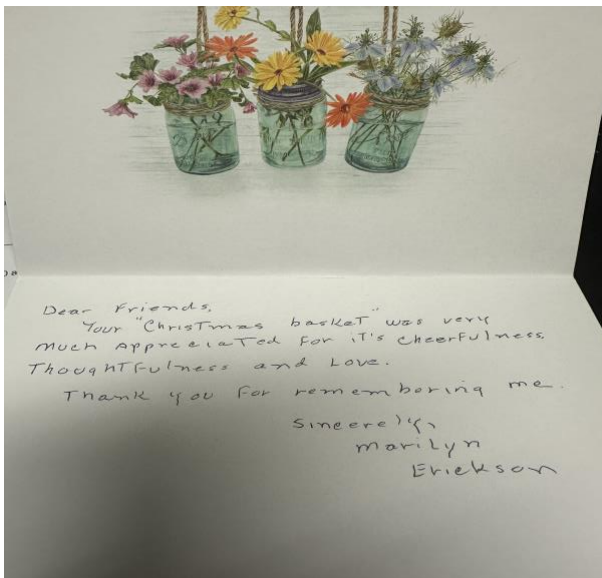 Dear Friends,
Your "Christmas basket" was very
much appreciated for it's cheerfulness,
Thoughtfulness and Love.
Thank you for remembering me.
Sincerely,
Marilyn
Erickson